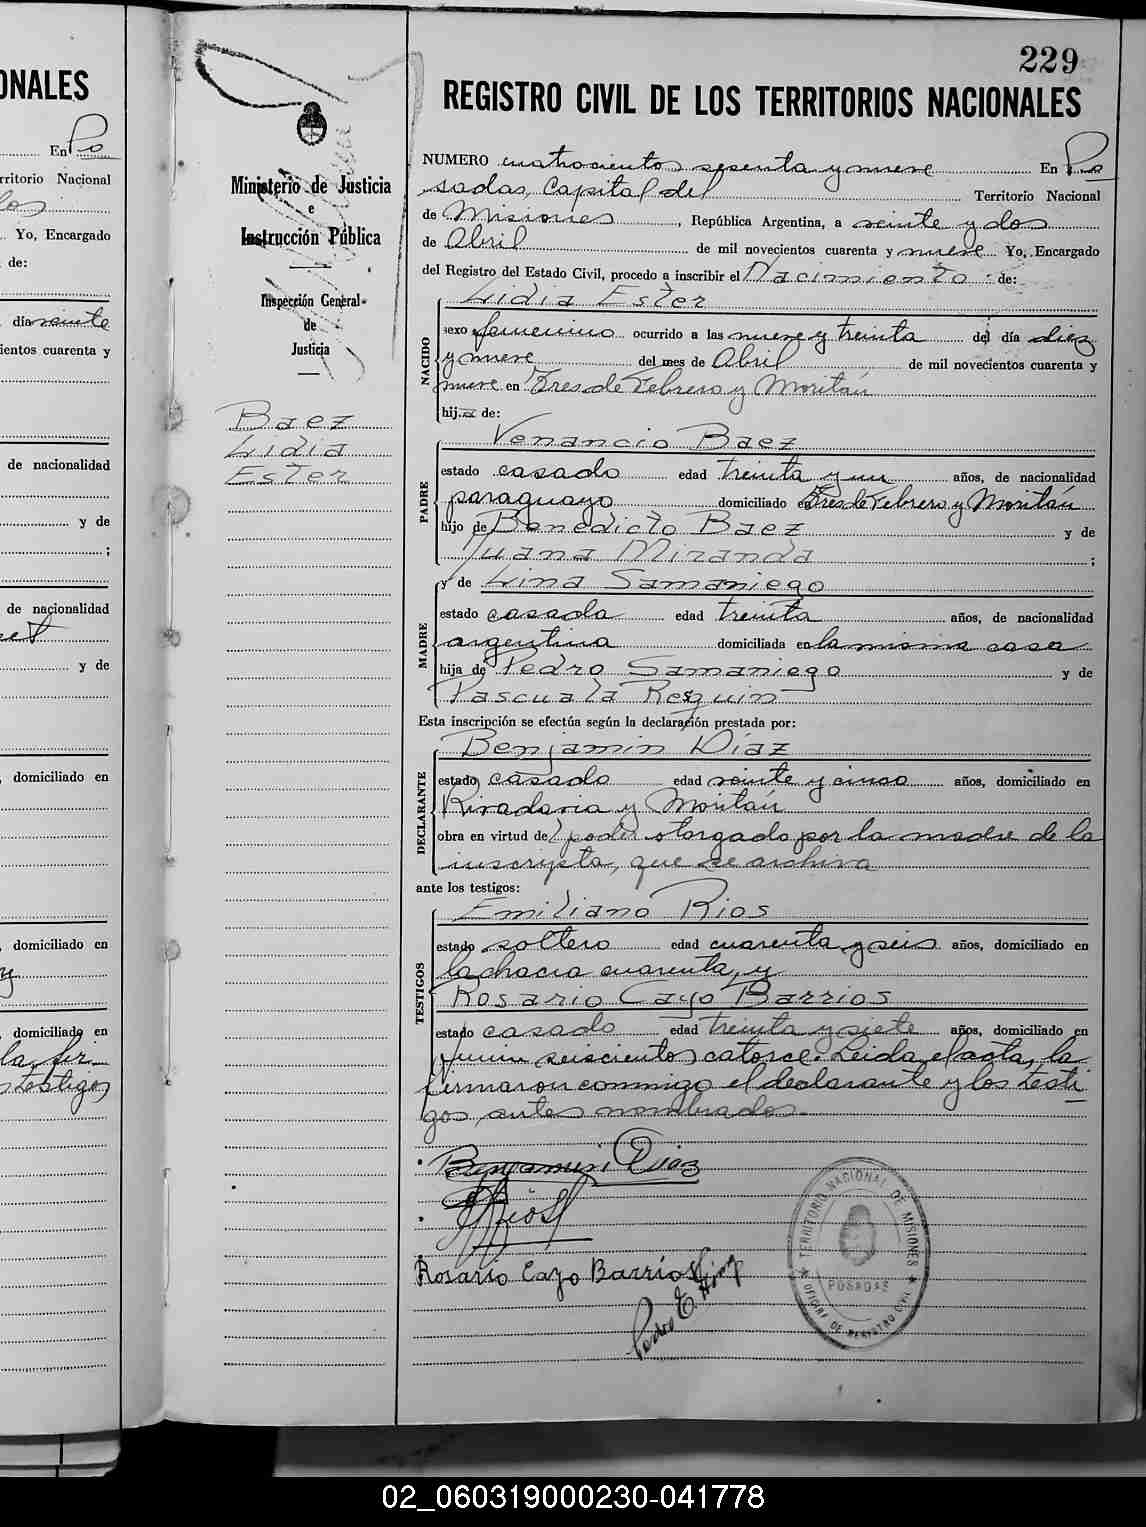 229
REGISTRO CIVIL DE LOS TERRITORIOS NACIONALES
NUMERO cuatrocientos sesenta y nueve En Po
sadas, Capital del Territorio Nacional
de Misiones, República Argentina, a veinte y dos
de Abril de mil novecientos cuarenta y nueve Yo, Encargado
del Registro del Estado Civil, procedo a inscribir el Nacimiento de:
NACIDO
Lidia Ester
sexo femenino ocurrido a las nueve y treinta del día diez
y nueve del mes de Abril de mil novecientos cuarenta y
nueve en Tres de Febrero y Moritán
hija de:
PADRE
Venancio Baez
estado casado edad treinta y un años, de nacionalidad
paraguayo domiciliado en Tres de Febrero y Moritán
hijo de Benedicto Baez y de
Juana Miranda ;
MADRE
y de Lina Samaniego
estado casada edad treinta años, de nacionalidad
argentina domiciliada en la misma casa
hija de Pedro Samaniego y de
Pascuala Resquin
Esta inscripción se efectúa según la declaración prestada por:
DECLARANTE
Benjamin Díaz
estado casado edad veinte y cinco años, domiciliado en
Rivadavia y Moritán
obra en virtud de poder otorgado por la madre de la
inscripta, que se archiva
ante los testigos:
TESTIGOS
Emiliano Rios
estado soltero edad cuarenta y seis años, domiciliado en
la chacra cuarenta, y
Rosario Cayo Barrios
estado casado edad treinta y siete años, domiciliado en
Junin seiscientos catorce. Leida el acta, la
firmaron conmigo el declarante y los testi
gos antes nombrados.
Benjamin Diaz
Rios
Rosario Cayo Barrios
Pedro E.
TERRITORIO NACIONAL DE MISIONES
POSADAS
OFICINA DE REGISTRO CIVIL
Ministerio de Justicia
e
Instrucción Pública
Inspección General
de
Justicia
Baez
Lidia
Ester
ONALES
En Po
rritorio Nacional
Yo, Encargado
de:
día veinte
ientos cuarenta y
de nacionalidad
y de
;
de nacionalidad
y de
, domiciliado en
, domiciliado en
, domiciliado en
la fir
testigos
02_060319000230-041778